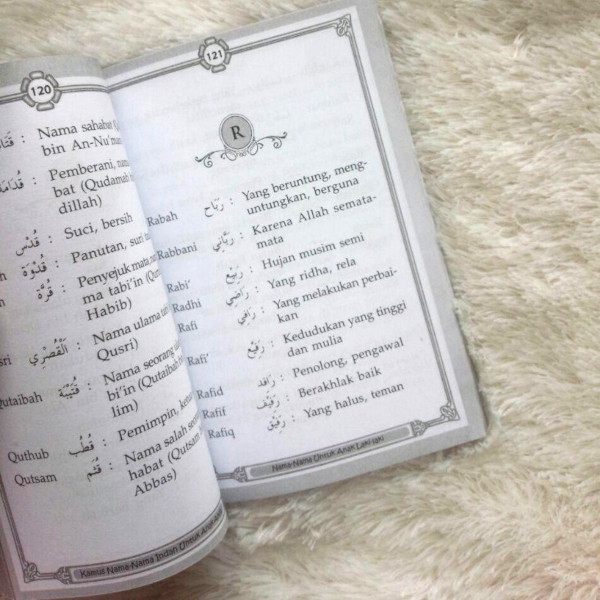 120
قَتَا : Nama sahabat
bin An-Nu'ma
قُدَامَة : Pemberani, nam
bat (Qudamah
dillah)
قُدُس : Suci, bersih
قُدْوَة : Panutan, suri
قُرَّة : Penyejuk mata,
ma tabi'in (Qu
Habib)
sri الْقُصْرِي : Nama ulama
Qusri)
Qutaibah قُتَيْبَة : Nama seorang
bi'in (Qutaibah
lim)
Quthub قُطُب : Pemimpin, ketua
Qutsam قُثَم : Nama salah se
habat (Qutsam
Abbas)
Kamus Nama-Nama Indah Untuk Anak
121
R
Rabah رَبَاح : Yang beruntung, meng-
untungkan, berguna
Rabbani رَبَّانِي : Karena Allah semata-
mata
Rabi' رَبِيْع : Hujan musim semi
Radhi رَاضِي : Yang ridha, rela
Rafi رَافِي : Yang melakukan perbai-
kan
Rafi' رَفِيْع : Kedudukan yang tinggi
dan mulia
Rafid رَافِد : Penolong, pengawal
Rafif رَفِيْف : Berakhlak baik
Rafiq رَفِيْق : Yang halus, teman
Nama-Nama Untuk Anak Laki-laki